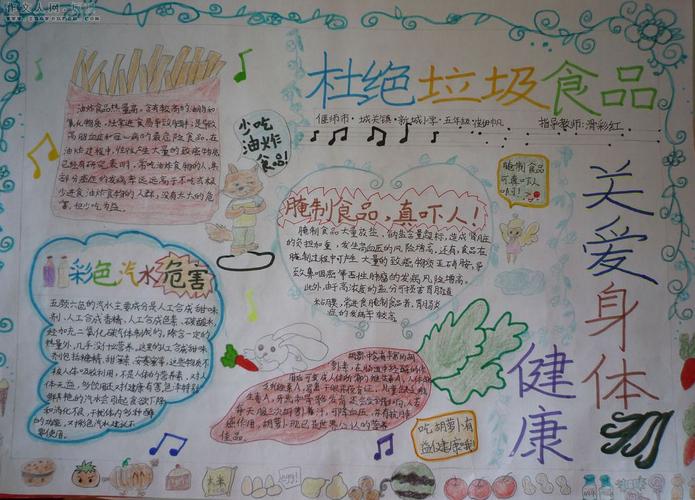 作文人网
杜绝垃圾食品
偃师市:城关镇·新城小学·五年级
指导教师:滑彩红
油炸食品热量高,含有较高的油脂和
氧化物质,经常进食易导致肥胖;是导致
高脂血症和冠心病的最危险食品。在
油炸过程中,往往产生大量的致癌物质。
已经有研究表明,常吃油炸食物的人,其
部分癌症的发病率远远高于不吃或极
少进食油炸食物的人群。
少吃
油炸
食品!
腌制食品
可真吓人
腌制食品,真吓人!
腌制食品大量放盐,钠盐含量超标,造成肾脏
的负担加重,发生高血压的风险增高。还有,食品在
腌制过程中可产生大量的致癌物质亚硝胺,导
致鼻咽癌等恶性肿瘤的发病风险增高。
此外,由于高浓度的盐分可损害胃肠道
粘膜,常进食腌制食品者,胃肠炎
症的发病率较高。
关爱身体
健康
彩色汽水危害
五颜六色的汽水主要成分是人工合成甜味
剂、人工合成香精、人工合成色素、碳酸水,
经加充二氧化碳气体制成的,除含一定的
热量外,几乎没什么营养。这里的人工合成甜味
剂包括糖精、甜蜜素、安赛蜜等,这些物质不
被人体吸收利用,不是人体的营养素,对人
体无益,多饮用还对健康有害。
吃胡萝卜有
益健康哦
大米